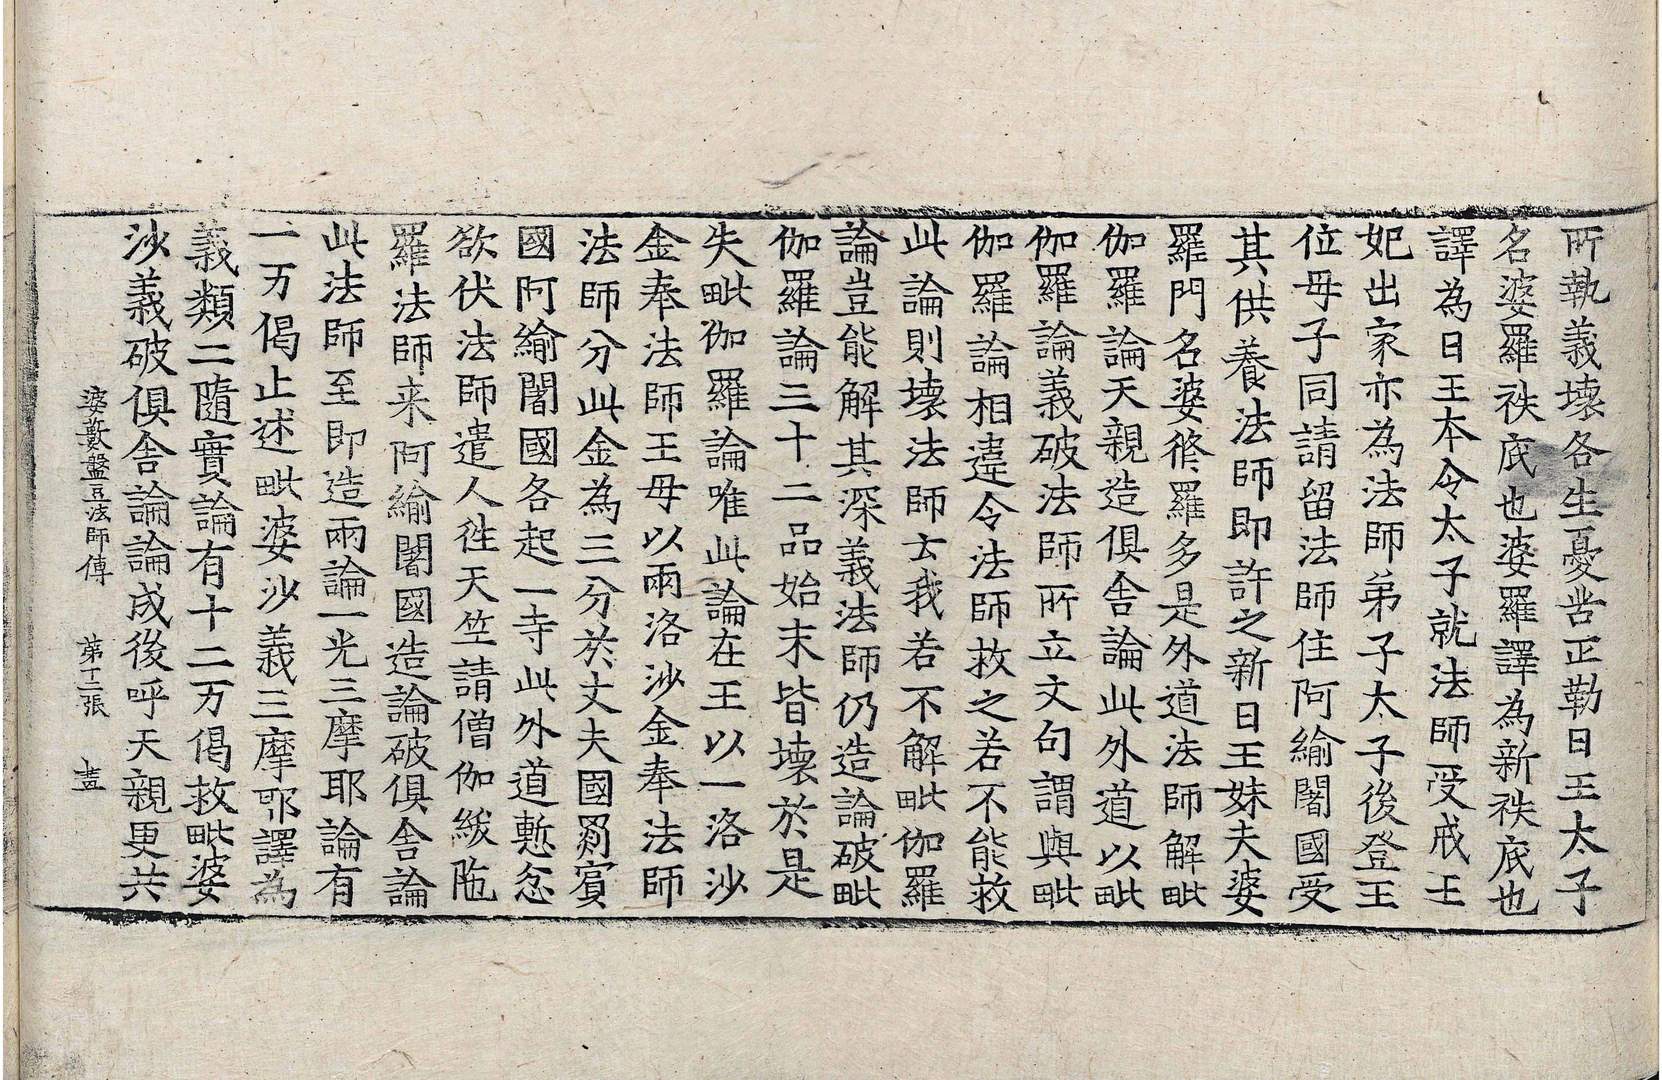 所執義壞各生憂苦正勒日王太子
名婆羅袟底也婆羅譯為新袟底也
譯為日王本令太子就法師受戒王
妃出家亦為法師弟子太子後登王
位母子同請留法師住阿緰闍國受
其供養法師即許之新日王妹夫婆
羅門名婆修羅多是外道法師解毗
伽羅論天親造俱舍論此外道以毗
伽羅論義破法師所立文句謂與毗
伽羅論相違令法師救之若不能救
此論則壞法師云我若不解毗伽羅
論豈能解其深義法師仍造論破毗
伽羅論三十二品始末皆壞於是
失毗伽羅論唯此論在王以一洛沙
金奉法師王母以兩洛沙金奉法師
法師分此金為三分於丈夫國罽賓
國阿緰闍國各起一寺此外道慙忿
欲伏法師遣人徃天竺請僧伽綬陁
羅法師来阿緰闍國造論破俱舍論
此法師至即造兩論一光三摩耶論有
一万偈止述毗婆沙義三摩耶譯為
義類二隨實論有十二万偈救毗婆
沙義破俱舍論論成後呼天親更共
婆藪盤豆法師傳 第十二張 盡